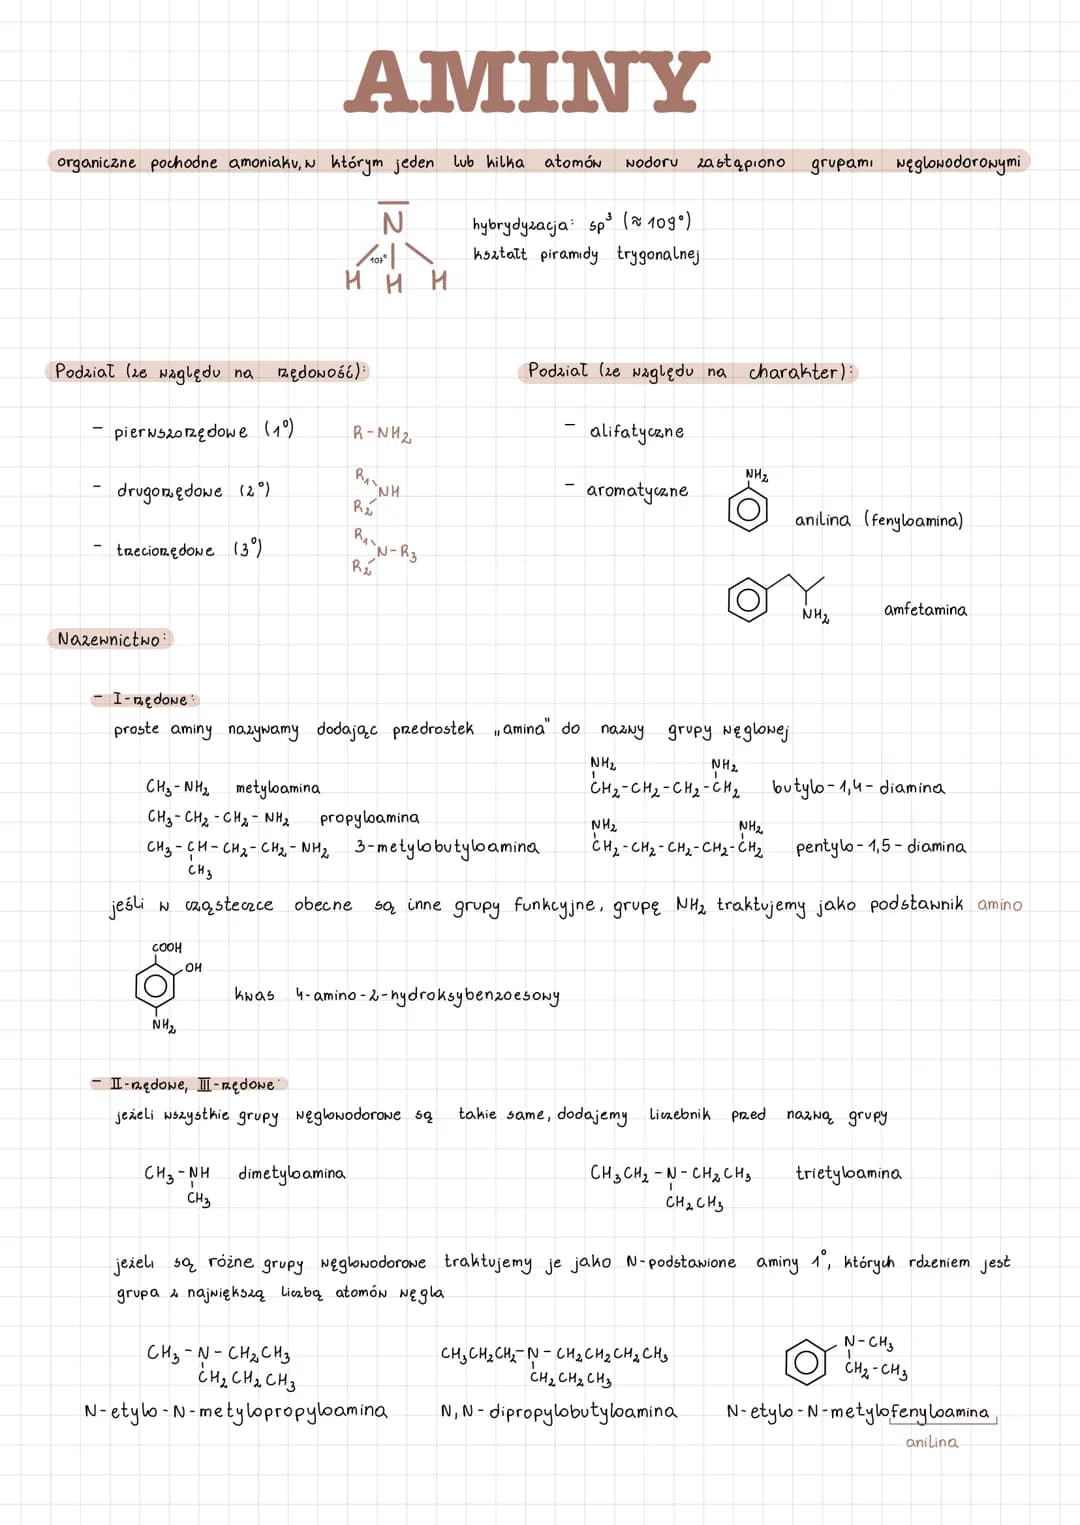 AMINY
organiczne pochodne amoniaku, w którym jeden lub kilka atomów wodoru zastąpiono grupami węglowodorowymi
N
107°
H H H
hybrydyzacja: sp³ (≈ 109°)
kształt piramidy trygonalnej
Podział (ze względu na rzędowość):
- pierwszorzędowe (1°) R-NH₂
- drugorzędowe (2°) R₁ R₂ NH
- trzeciorzędowe (3°) R₁ R₂ N-R₃
Podział (ze względu na charakter):
- alifatyczne
- aromatyczne
NH₂
anilina (fenyloamina)
NH₂
amfetamina
Nazewnictwo:
- I-rzędowe:
proste aminy nazywamy dodając przedrostek „amina" do nazwy grupy węglowej
CH₃-NH₂ metyloamina
CH₃-CH₂-CH₂-NH₂ propyloamina
CH₃-CH-CH₂-CH₂-NH₂ 3-metylobutyloamina
CH₃
NH₂ NH₂
CH₂-CH₂-CH₂-CH₂ butylo-1,4-diamina
NH₂ NH₂
CH₂-CH₂-CH₂-CH₂-CH₂ pentylo-1,5-diamina
jeśli w cząsteczce obecne są inne grupy funkcyjne, grupę NH₂ traktujemy jako podstawnik amino
COOH
OH
NH₂
kwas 4-amino-2-hydroksybenzoesowy
- II-rzędowe, III-rzędowe:
jeżeli wszystkie grupy węglowodorowe są takie same, dodajemy liczebnik przed nazwą grupy
CH₃-NH dimetyloamina
CH₃
CH₃CH₂-N-CH₂CH₃ trietyloamina
CH₂CH₃
jeżeli są różne grupy węglowodorowe traktujemy je jako N-podstawione aminy 1°, których rdzeniem jest
grupa z największą liczbą atomów węgla
CH₃-N-CH₂CH₃
CH₂CH₂CH₃
N-etylo-N-metylopropyloamina
CH₃CH₂CH₂-N-CH₂CH₂CH₂CH₃
CH₂CH₂CH₃
N,N-dipropylobutyloamina
N-CH₃
CH₂-CH₃
N-etylo-N-metylofenyloamina
anilina